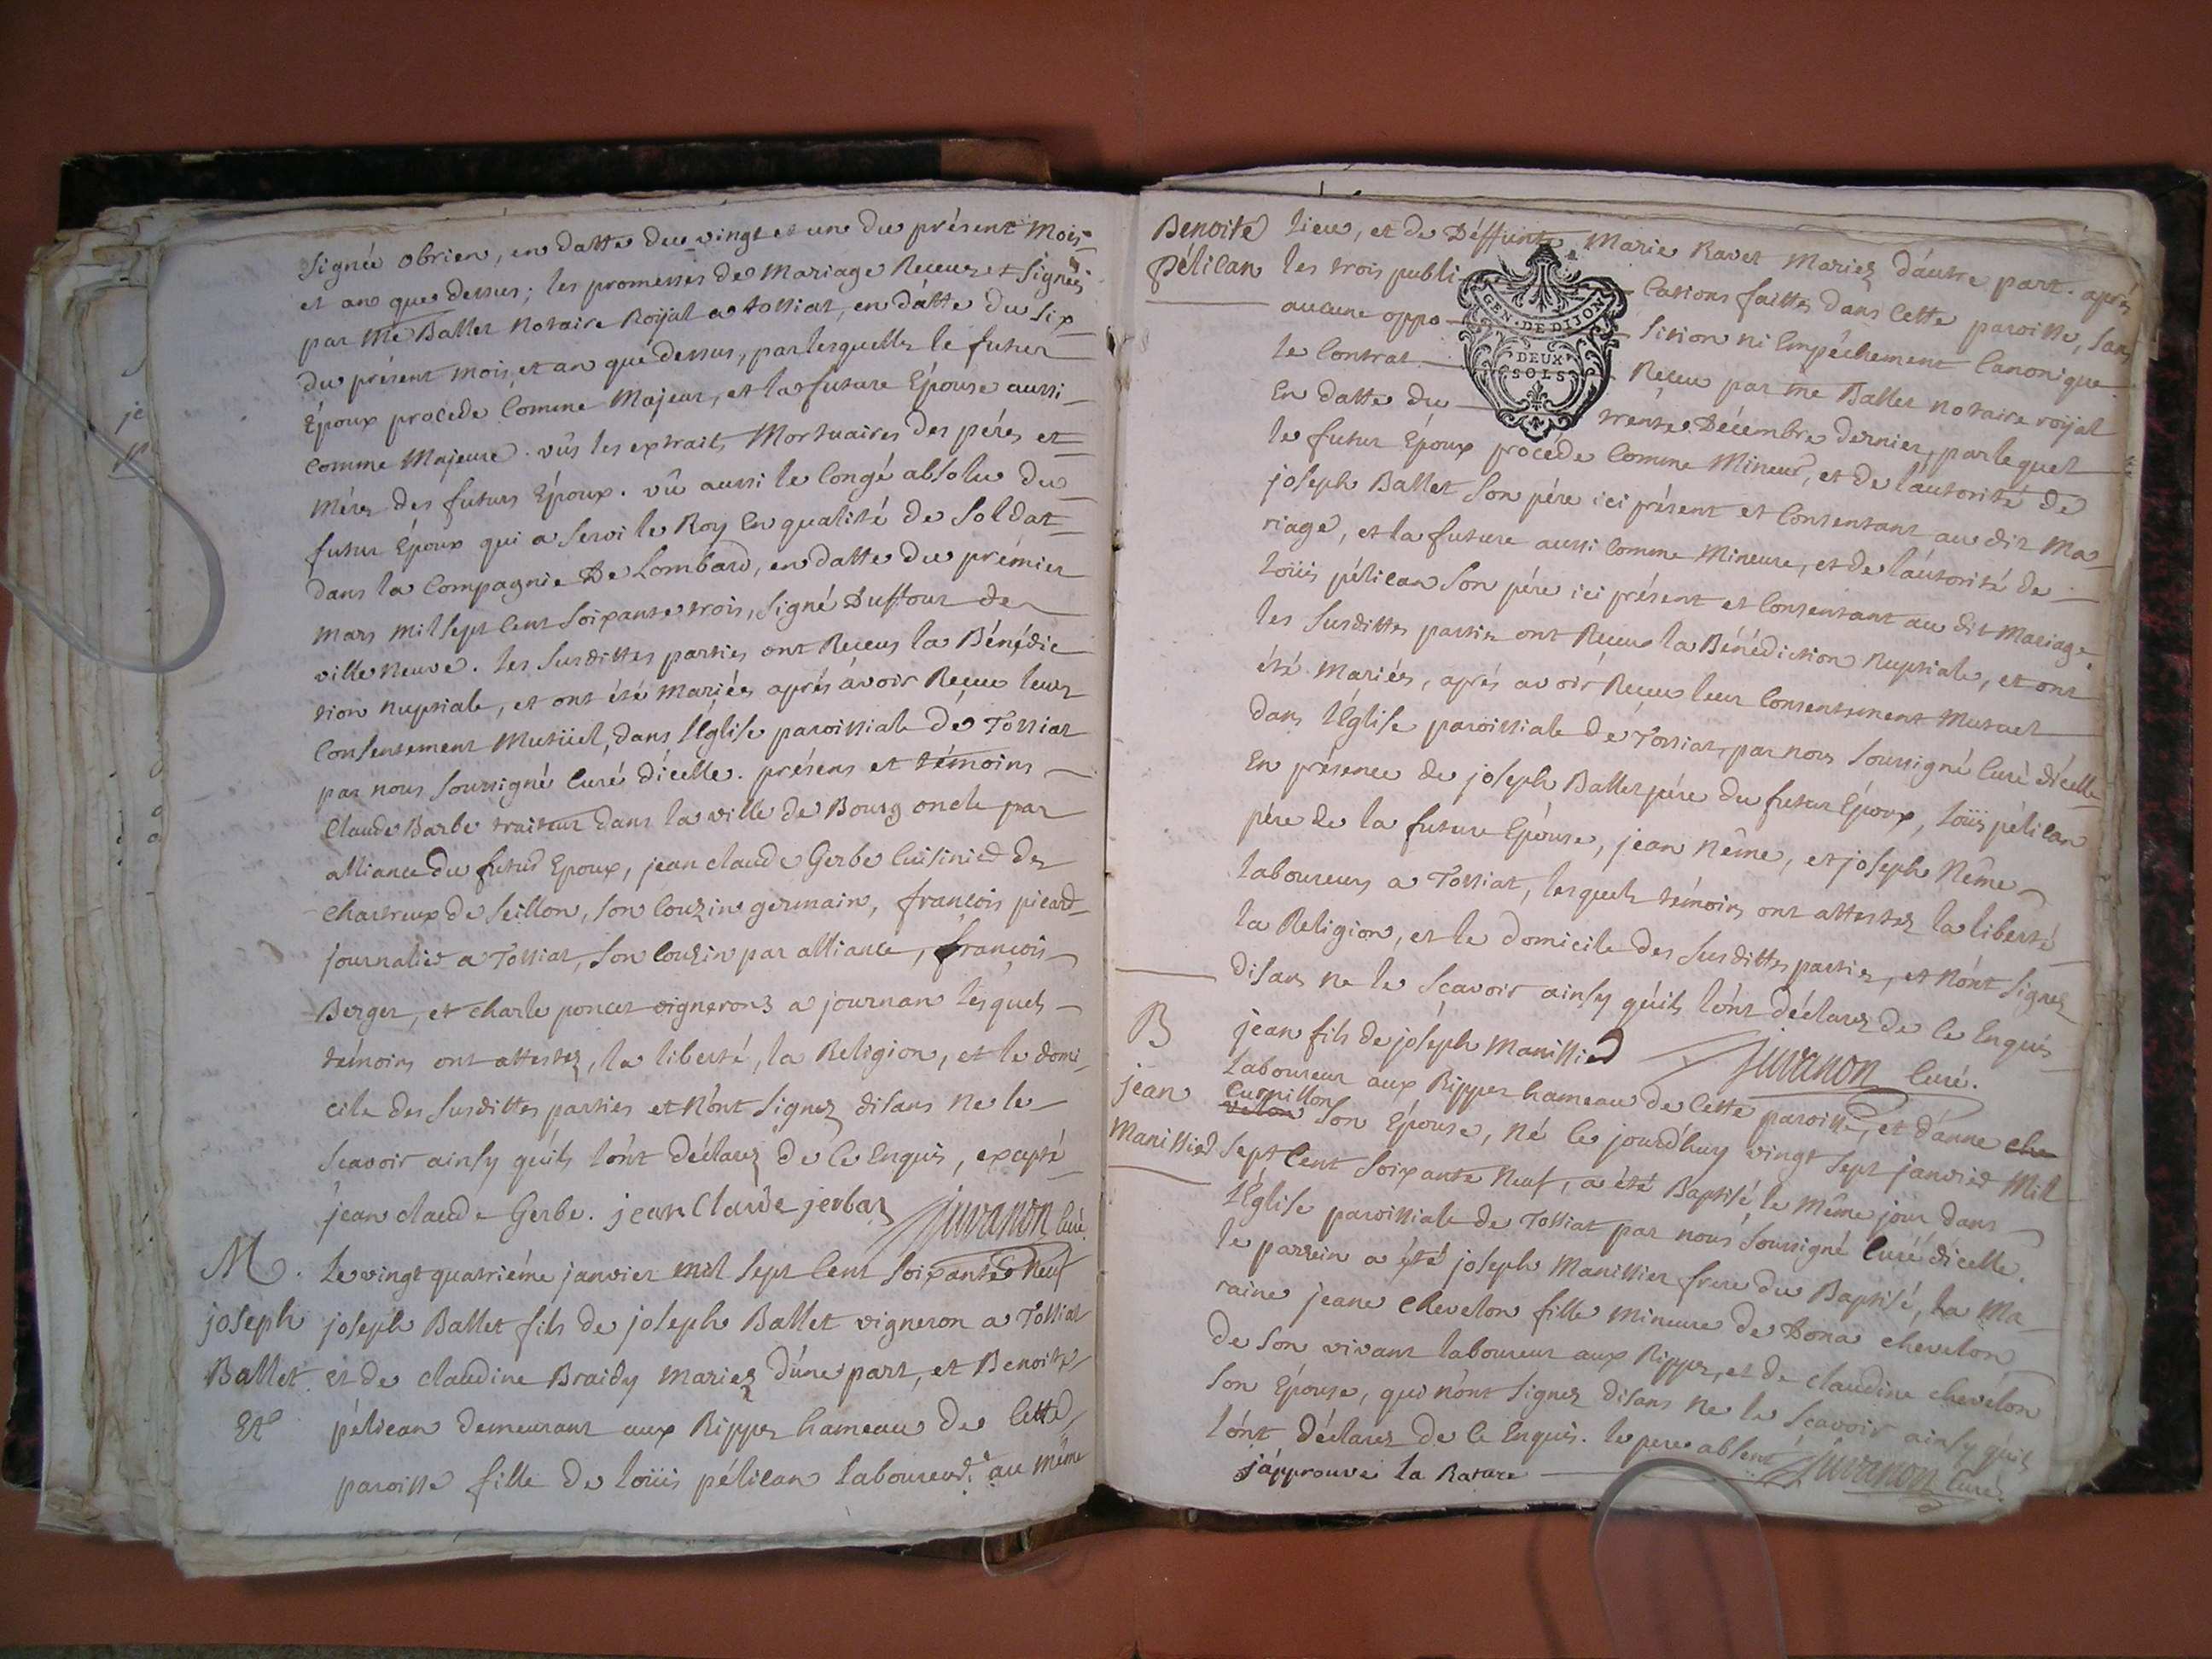 Signée obrien, en datte du vingt et un du présent Mois
et an que dessus; les promesses de Mariage Receues et Signées
par me Ballet Notaire Roijal a tossiat, en datte du Six
du présent mois et an que dessus, par lesquelles le futur
Époux procede Comme Majeur, et la future Épouse aussi
Comme Majeure. vûs les extraits Mortuaires des péres et
Méres des futurs Époux. vû aussi le Congé absolu du
futur Époux qui a Servi le Roy En qualité de Soldat
dans la Compagnie De Lombard, en datte du prémier
Mars mil Sept Cent Soixante trois, Signé Duffour de
ville Neuve. les Susdittes parties ont Receus la Bénédic
tion Nuptiale, et ont été Mariées aprés avoir Reçue leur
Consentement Mutüel, dans l'Église paroissiale de Tossiat
par nous Soussigné Curé d'icelle. présens et témoins
Claude Barbe traiteur dans la ville de Bourg oncle par
alliance du futur Epoux, jean claude Gerbe Cuisinier des
Chartreux de Seillon, son Couzin germain, françois picard
journalier a Tossiat, Son Couzin par alliance, françois
Berger, et Charle poncet vignerons a journan lesquels
témoins ont attestez, la liberté, la Religion, et le domi
cile des Susdittes parties et N'ont Signez disans Ne le
Scavoir ainsy qu'ils l'ônt déclarez de Ce Enquis, excepté
jean claude Gerbe. jean Claude jerbaz Juvanon Curé.
M. Le vingt quatriéme janvier mil Sept Cent Soixante Neuf
joseph joseph Ballet fils de joseph Ballet vigneron a Tossiat
Ballet et de claudine Braidy mariez d'une part, et Benoite
Et pélican demeurant aux Rippes hameau de Cette
paroisse fille de loüis pélican laboureur au même
Benoite lieu, et de Déffunte Marie Ravet Mariez d'autre part. aprés
Pélican les trois publi cations faittes dans Cette paroisse, Sans
aucune oppo sition ni Empéchement Canonique
le Contrat Réçeu par me Ballet notaire roijal
En datte du trente Décembre dernier, par lequel
le futur Époux procéde Comme Mineur, et de l'autorité de
joseph Ballet Son pére ici présent et Consentant au dit Ma
riage, et la future aussi Comme Mineure, et de l'autorité de
loüis pélican Son pére ici présent et Consentant au dit Mariage.
les Susdittes parties ont Receus la Bénédiction Nuptiale, et ont
été Mariés, aprés avoir Reçue leur Consentement Mutuel
dans l'Église paroissiale De Tossiat, par nous Soussigné Curé d'icelle
En présence de joseph Ballet pére du futur Époux, loüis pélican
pére de la future Epouse, jean Néme, et joseph Néme
laboureurs a Tossiat, lesquels témoins ont attestez la liberté
la Religion, et le domicile des Susdittes parties, et N'ont Signez
disans ne le Scavoir ainsy qu'ils l'ont déclarez de Ce Enquis
Juvanon Curé.
B jean fils de joseph Manissier
Laboureur aux Rippes hameau de Cette paroisse, et d'anne che
jean Curnillon
velon Son Épouse, Né le jourd'huy vingt Sept janvier Mil
Manissier Sept Cent Soixante Neuf, a été Baptisé le Même jour dans
l'Église paroissiale de Tossiat par nous Soussigné Curé d'icelle.
le parrein a été joseph Manissier frere du Baptisé, la Ma
raine jeane Chevelon fille Mineure de Dona chevelon
de Son vivant laboureur aux Rippes, et de Claudine chevelon
Son Épouse, qui n'ont Signez disans Ne le Scavoir ainsy qu'ils
l'ont déclarez de Ce Enquis. le pere absent Juvanon Curé.
j'approuve la Rature
GEN. DE DIJON
DEUX
SOLS